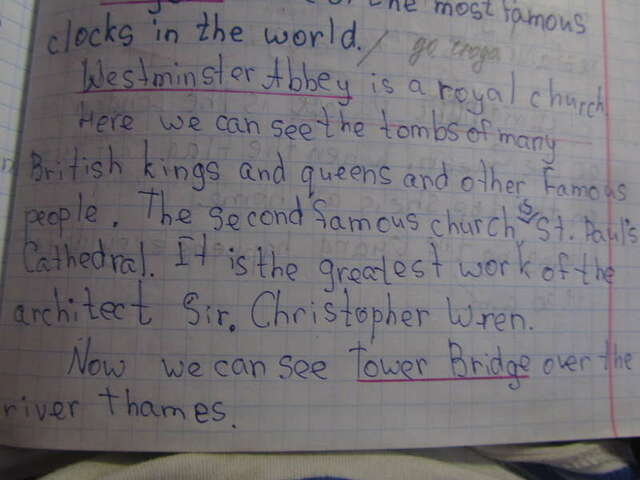 the most famous
clocks in the world. / go
Westminster Abbey is a royal church
Here we can see the tombs of many
British kings and queens and other Famous
people. The second famous church is St. Paul's
Cathedral. It is the greatest work of the
architect Sir. Christopher Wren.
Now we can see Tower Bridge over the
river Thames.